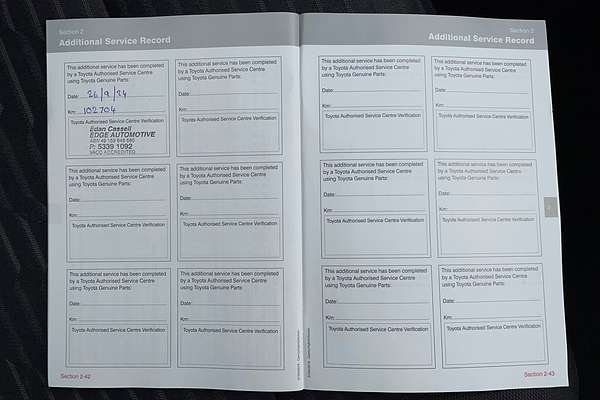 Section 2
Additional Service Record
This additional service has been completed
by a Toyota Authorised Service Centre
using Toyota Genuine Parts:
Date: 26/9/24
Km: 102704
Toyota Authorised Service Centre Verification
Edan Cassell
EDGE AUTOMOTIVE
P: 5339 1092
VACC ACCREDITED
This additional service has been completed
by a Toyota Authorised Service Centre
using Toyota Genuine Parts:
Date:
Km:
Toyota Authorised Service Centre Verification
This additional service has been completed
by a Toyota Authorised Service Centre
using Toyota Genuine Parts:
Date:
Km:
Toyota Authorised Service Centre Verification
This additional service has been completed
by a Toyota Authorised Service Centre
using Toyota Genuine Parts:
Date:
Km:
Toyota Authorised Service Centre Verification
This additional service has been completed
by a Toyota Authorised Service Centre
using Toyota Genuine Parts:
Date:
Km:
Toyota Authorised Service Centre Verification
This additional service has been completed
by a Toyota Authorised Service Centre
using Toyota Genuine Parts:
Date:
Km:
Toyota Authorised Service Centre Verification
Section 2-42
Section 2
Additional Service Record
This additional service has been completed
by a Toyota Authorised Service Centre
using Toyota Genuine Parts:
Date:
Km:
Toyota Authorised Service Centre Verification
This additional service has been completed
by a Toyota Authorised Service Centre
using Toyota Genuine Parts:
Date:
Km:
Toyota Authorised Service Centre Verification
This additional service has been completed
by a Toyota Authorised Service Centre
using Toyota Genuine Parts:
Date:
Km:
Toyota Authorised Service Centre Verification
This additional service has been completed
by a Toyota Authorised Service Centre
using Toyota Genuine Parts:
Date:
Km:
Toyota Authorised Service Centre Verification
This additional service has been completed
by a Toyota Authorised Service Centre
using Toyota Genuine Parts:
Date:
Km:
Toyota Authorised Service Centre Verification
This additional service has been completed
by a Toyota Authorised Service Centre
using Toyota Genuine Parts:
Date:
Km:
Toyota Authorised Service Centre Verification
Section 2-43